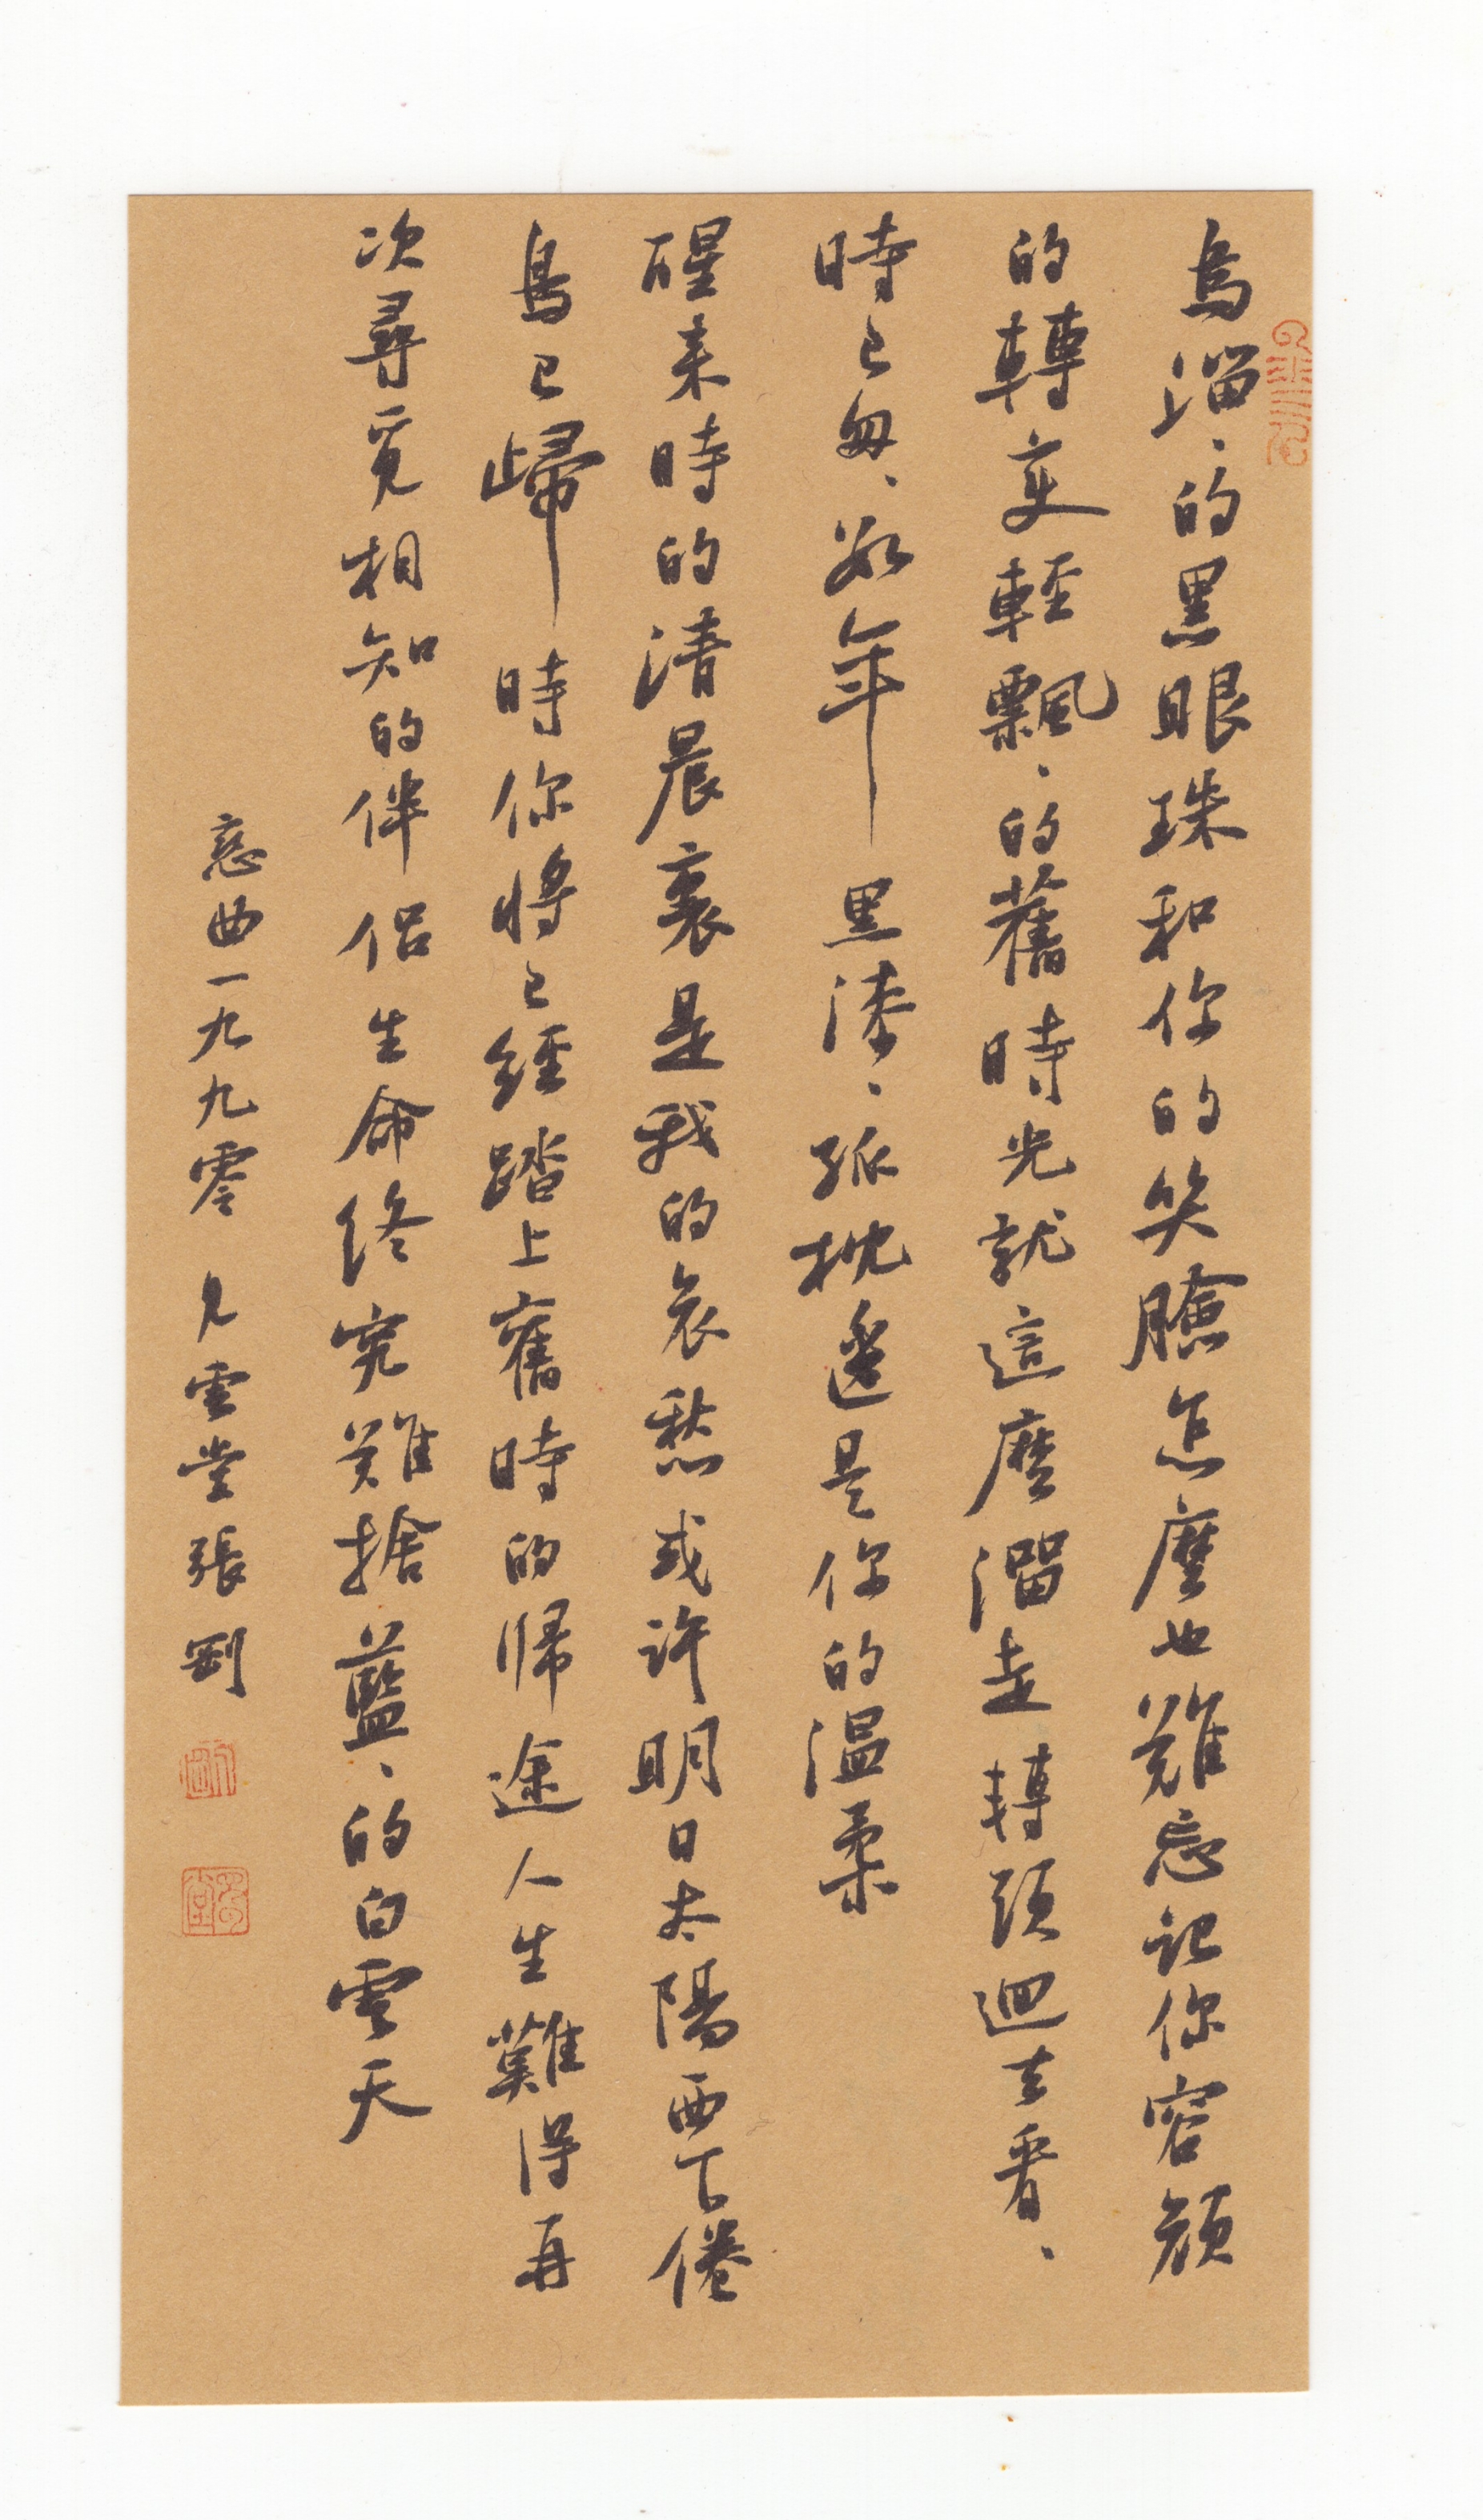 烏溜、的黑眼珠和你的笑臉怎麼也難忘記你容顔
的轉变輕飄、的舊時光就這麼溜走轉頭迴去看、
時已匆、数年黑漆、孤枕邊是你的温柔
醒来時的清晨裏是我的哀愁或许明日太陽西下倦
鳥已歸時你將已經踏上舊時的帰途人生難得再
次尋覓相知的伴侣生命终究難捨藍、的白雲天
恋曲一九九零 見雲堂張剛